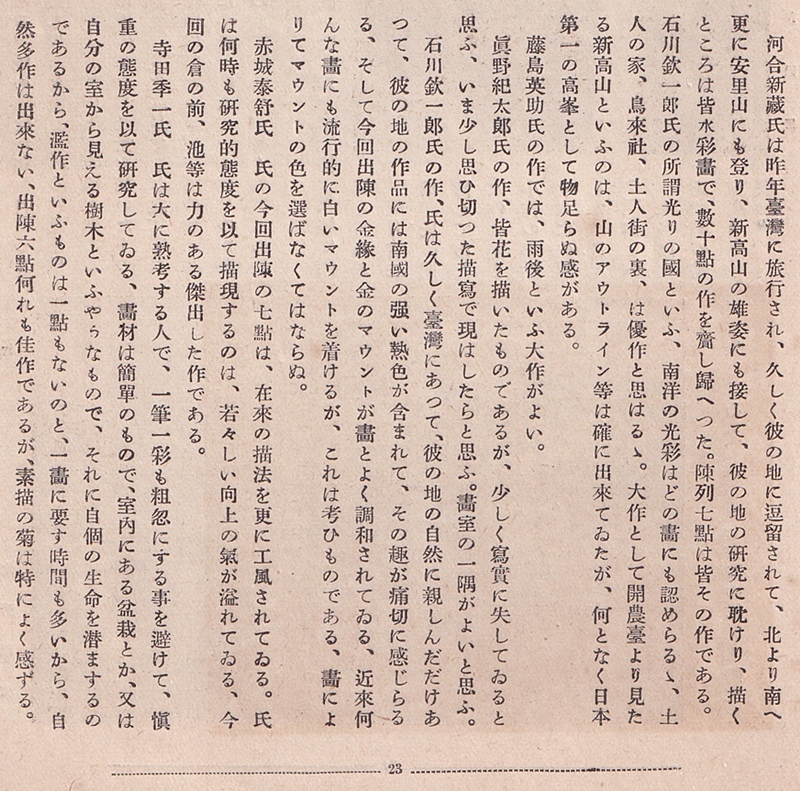 河合新藏氏は昨年臺灣に旅行され、久しく彼の地に逗留されて、北より南へ
更に安里山にも登り、新高山の雄姿にも接して、彼の地の研究に耽けり、描く
ところは皆水彩畫で、數十點の作を齎し歸へつた。陳列七點は皆その作である。
石川欽一郎氏の所謂光りの國といふ、南洋の光彩はどの畫にも認めらるゝ、土
人の家、烏來社、土人街の裏、は優作と思はるゝ。大作として開農臺より見た
る新高山といふのは、山のアウトライン等は確に出來てゐたが、何となく日本
第一の高峯として物足らぬ感がある。
藤島英助氏の作では、雨後といふ大作がよい。
眞野紀太郎氏の作、皆花を描いたものであるが、少しく寫實に失してゐると
思ふ、いま少し思ひ切つた描寫で現はしたらと思ふ。畫室の一隅がよいと思ふ。
石川欽一郎氏の作、氏は久しく臺灣にあつて、彼の地の自然に親しんだだけあ
つて、彼の地の作品には南國の强い熱色が含まれて、その趣が痛切に感じらる
る、そして今回出陳の金緣と金のマウントが畫とよく調和されてゐる、近來何
んな畫にも流行的に白いマウントを着けるが、これは考ひものである、畫によ
りてマウントの色を選ばなくてはならぬ。
赤城泰舒氏 氏の今回出陳の七點は、在來の描法を更に工風されてゐる。氏
は何時も研究的態度を以て描現するのは、若々しい向上の氣が溢れてゐる、今
回の倉の前、池等は力のある傑出した作である。
寺田季一氏 氏は大に熟考する人で、一筆一彩も粗忽にする事を避けて、愼
重の態度を以て研究してゐる、畫材は簡單のもので、室內にある盆栽とか、又は
自分の室から見える樹木といふやうなもので、それに自個の生命を潜まするの
であるから、濫作といふものは一點もないのと、一畫に要す時間も多いから、自
然多作は出來ない、出陳六點何れも佳作であるが、素描の菊は特によく感ずる。
23